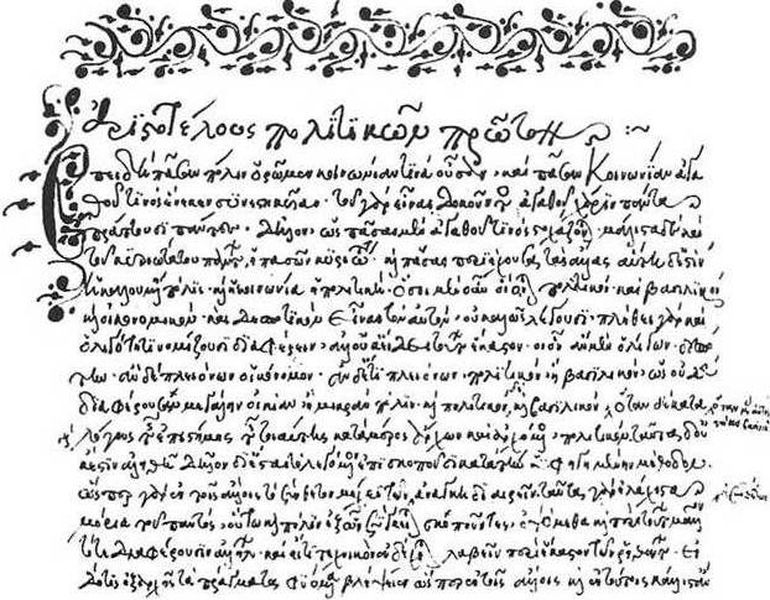 Ἀριστοτέλους πολιτικῶν πρῶτον
Ἐπειδὴ πᾶσαν πόλιν ὁρῶμεν κοινωνίαν τινὰ οὖσαν· καὶ πᾶσαν κοινωνίαν ἀγα
θοῦ τινὸς ἕνεκεν συνεστηκυῖαν· τοῦ γὰρ εἶναι δοκοῦντος ἀγαθοῦ χάριν πάντα
πράττουσι πάντες· δῆλον ὡς πᾶσαι μὲν ἀγαθοῦ τινὸς στοχάζονται· μάλιστα δὲ καὶ
τοῦ κυριωτάτου πάντων, ἡ πασῶν κυριωτάτη καὶ πάσας περιέχουσα τὰς ἄλλας αὕτη δ' ἐστὶν
ἡ καλουμένη πόλις· καὶ ἡ κοινωνία ἡ πολιτική· ὅσοι μὲν οὖν οἴονται πολιτικὸν καὶ βασιλικὸν
καὶ οἰκονομικὸν καὶ δεσποτικὸν εἶναι τὸν αὐτόν· οὐ καλῶς λέγουσι· πλήθει γὰρ καὶ
ὀλιγότητι νομίζουσι διαφέρειν· ἀλλ' οὐκ εἴδει τούτων ἕκαστον· οἷον ἂν μὲν ὀλίγων· δεσπό
την· ἂν δὲ πλειόνων οἰκονόμον· ἂν δ' ἔτι πλειόνων πολιτικὸν ἢ βασιλικόν· ὡς οὐδὲν
διαφέρουσαν μεγάλην οἰκίαν ἢ μικρὰν πόλιν καὶ πολιτικὸν καὶ βασιλικόν ὅταν δὲ κατὰ
λόγους τῆς ἐπιστήμης τῆς τοιαύτης κατὰ μέρος ἄρχων καὶ ἀρχόμενος πολιτικόν· ταῦτα δ' οὐ
κ ἔστιν ἀληθῆ. δῆλον δ' ἔσται τὸ λεγόμενον ἐπισκοποῦσι κατὰ τὴν ὑφηγημένην μέθοδον.
ὥσπερ γὰρ ἐν τοῖς ἄλλοις τὸ σύνθετον μέχρι τῶν ἀνάγκη διαιρεῖν· ταῦτα γὰρ ἐλάχιστα
μόρια τοῦ παντός· οὕτω καὶ πόλιν ἐξ ὧν σύγκειται σκοποῦντες ὀψόμεθα καὶ περὶ τούτων μᾶλλον
τί τε διαφέρουσιν ἀλλήλων· καὶ εἴ τι τεχνικὸν ἐνδέχεται λαβεῖν περὶ ἕκαστον τῶν ῥηθέντων· Εἰ
δή τις ἐξ ἀρχῆς τὰ πράγματα φυόμενα βλέψειεν ὥσπερ ἐν τοῖς ἄλλοις καὶ ἐν τούτοις κάλλιστ' ἂν